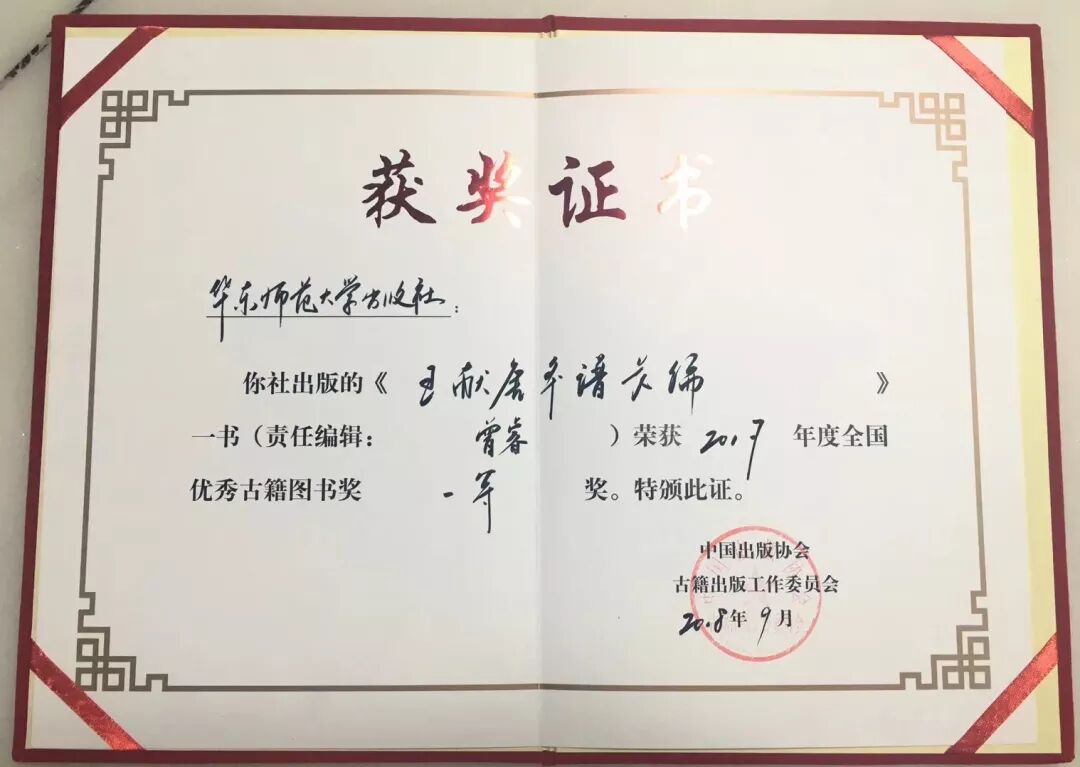 获奖证书
华东师范大学出版社：
你社出版的《王献唐年谱长编》
一书（责任编辑：曾睿）荣获2017年度全国
优秀古籍图书奖一等奖。特颁此证。
中国出版协会
古籍出版工作委员会
2018年9月